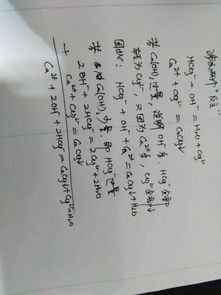 HCO₃⁻ + OH⁻ = H₂O + CO₃²⁻
Ca²⁺ + CO₃²⁻ = CaCO₃↓
若 Ca(OH)₂过量, 说明 OH⁻多, HCO₃⁻全部
转为 CO₃²⁻, 又因为 Ca²⁺多, CO₃²⁻全部↓
因此: HCO₃⁻ + OH⁻ + Ca²⁺ = CaCO₃↓ + H₂O
若 Ca(OH)₂少量, 即 HCO₃⁻过量
2OH⁻ + 2HCO₃⁻ = 2CO₃²⁻ + 2H₂O
+ Ca²⁺ + CO₃²⁻ = CaCO₃↓
Ca²⁺ + 2OH⁻ + 2HCO₃⁻ = CaCO₃↓ + CO₃²⁻ + 2H₂O